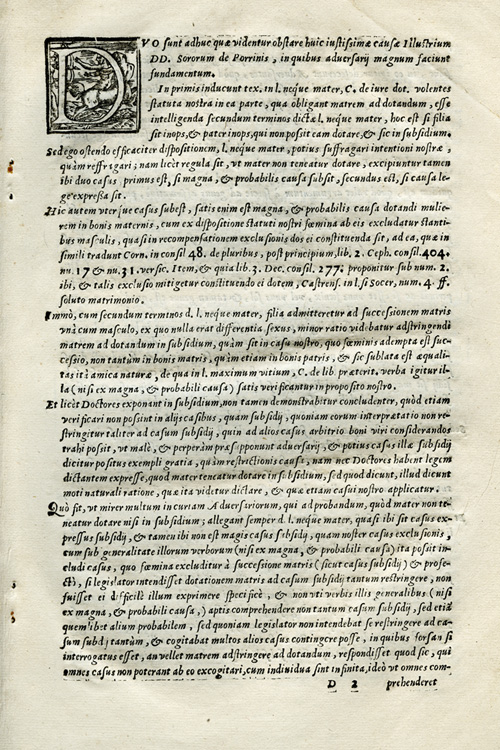 DVO sunt adhuc quæ videntur obstare huic iustissimæ causæ Illustrium
DD. Sororum de Porrinis, in quibus adversarij magnum faciunt
fundamentum.
In primis inducunt tex. in l. neque mater, C. de iure dot. volentes
statuta nostra in ea parte, qua obligant matrem ad dotandum, esse
intelligenda secundum terminos dictæ l. neque mater, hoc est si filia
sit inops, & pater inops, qui non possit eam dotare, & sic in subsidium.
Sed ego ostendo efficaciter dispositionem, l. neque mater, potius suffragari intentioni nostræ,
quàm reffragari; nam licèt regula sit, vt mater non teneatur dotare, excipiuntur tamen
ibi duo casus primus est, si magna, & probabilis causa subsit, secundus est, si causa le-
ge expressa sit.
Hic autem vterque casus subest, satis enim est magna, & probabilis causa dotandi mulie-
rem in bonis maternis, cum ex dispositione statuti nostri fœmina ab eis excludatur stanti-
bus masculis, quasi in recompensationem exclusionis dos ei constituenda sit, ad ea, quæ in
simili tradunt Corn. in consil 48. de pluribus, post principium, lib. 2. Ceph. consil. 404.
nu. 17 & nu. 31. versic. Item, & quia lib. 3. Dec. consil. 277. proponitur sub num. 2.
ibi, & talis exclusio mitigetur constituendo ei dotem, Castrens. in l. si Socer, num. 4. ff.
soluto matrimonio.
Immò, cum secundum terminos d. l. neque mater, filia admitteretur ad successionem matris
vnà cum masculo, ex quo nulla erat differentia sexus, minor ratio videbatur adstringendi
matrem ad dotandum in subsidium, quàm sit in casu nostro, quo fœminis adempta est suc-
cessio, non tantùm in bonis matris, quàm etiam in bonis patris, & sic sublata est æquali-
tas ità amica naturæ, de qua in l. maximum vitium, C. de lib. præterit. verba igitur il-
la (nisi ex magna, & probabili causa) satis verificantur in proposito nostro.
Et licèt Doctores exponant in subsidium, non tamen demonstrabitur concludenter, quòd etiam
verificari non possint in alijs casibus, quam subsidij, quoniam eorum interpretatio non re-
stringitur taliter ad casum subsidij, quin ad alios casus arbitrio boni viri considerandos
trahi possit, vt malè, & perperàm præsupponunt adversarij, & potius casus illæ subsidij
dicitur positus exempli gratia, quàm restrictionis causa, nam nec Doctores habent legem
dictantem expresse, quod mater teneatur dotare in subsidium, sed quod dicunt, illud dicunt
moti naturali ratione, quæ ita videtur dictare, & quæ etiam casui nostro applicatur.
Quò fit, vt mirer multum in curiam Aduersariorum, qui ad probandum, quòd mater non te-
neatur dotare nisi in subsidium; allegant semper d. l. neque mater, quasi ibi sit casus ex-
pressus subsidij, & tamen ibi non est magis casus subsidij, quam noster casus exclusionis,
cum sub generalitate illorum verborum (nisi ex magna, & probabili causa) ita possit in-
cludi casus, quo fœmina excluditur à successione matris (sicut casus subsidij) & profe-
ctò, si legislator intendisset dotationem matris ad casum subsidij tantum restringere, non
fuisset ei difficilè illum exprimere specificè, & non vti verbis illis generalibus (nisi
ex magna, & probabili causa,) aptis comprehendere non tantum casum subsidij, sed etiã
quemlibet alium probabilem, sed quoniam legislator non intendebat se restringere ad ca-
sum subdj tantùm, & cogitabat multos alios casus contingere posse, in quibus forsan si
interrogatus esset, an vellet matrem adstringere ad dotandum, respondisset quod sic, qui
omnes casus non poterant ab eo excogitari, cum indiuidua sint infinita, ideò vt omnes com-
D 2 prehenderet